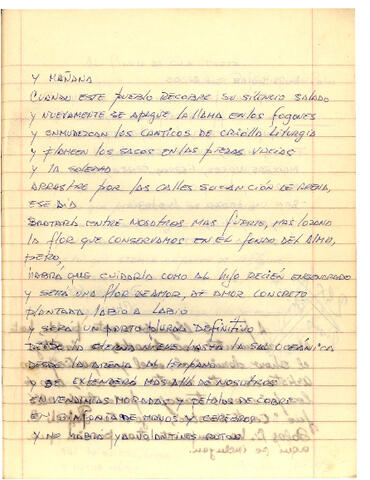 Y MAÑANA
CUANDO ESTE PUEBLO RECOBRE SU SILENCIO SALADO
Y NUEVAMENTE SE APAGUE LA LLAMA EN LOS FOGONES
Y ENMUDEZCAN LOS CANTICOS DE CRIOLLA LITURGIA
Y FLAMEEN LOS SACOS EN LAS PIEZAS VACIAS
Y LA SOLEDAD
ARRASTRE POR LAS CALLES SU CANCIÓN DE ARENA,
ESE DIA
BROTARÁ ENTRE NOSOTROS MAS FUERTE, MAS LOZANO
LA FLOR QUE CONSERVAMOS EN EL FONDO DEL ALMA,
PERO,
HABRÁ QUE CUIDARLA COMO AL HIJO RECIÉN ENGENDRADO
Y SERÁ UNA FLOR DE AMOR, DE AMOR CONCRETO
PLANTADA LABIO A LABIO
Y SERÁ UN PARTO PLURAL DEFINITIVO
DESDE LA ETERNA NIEVE HASTA LA SAL OCEÁNICA
DESDE LA ARENA AL TÉMPANO
Y SE EXTENDERÁ MÁS ALLÁ DE NOSOTROS
EN VENDIMIAS MORADAS Y PÉTALOS DE COBRE
EN SINFONIA DE MANOS Y CEREBROS
Y NO HABRÁ YA VOLANTINES ROTOS